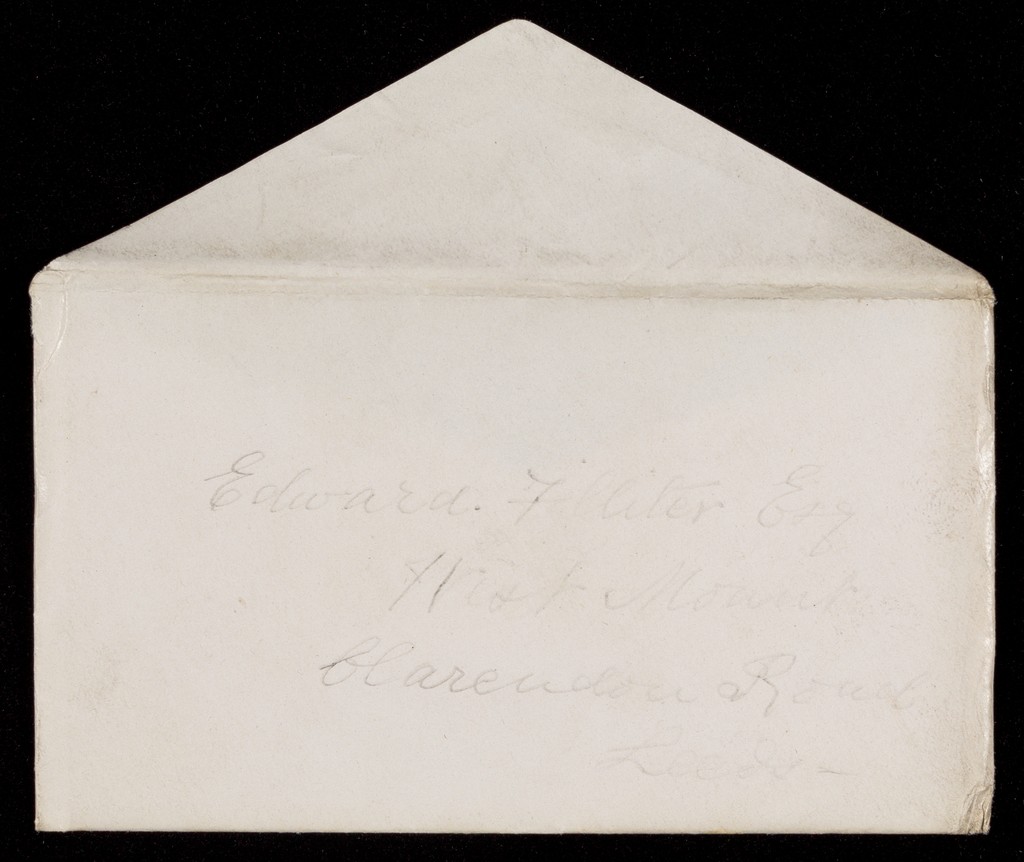 Edward. Filliter Esq
West Mount
Clarendon Road
Leeds-